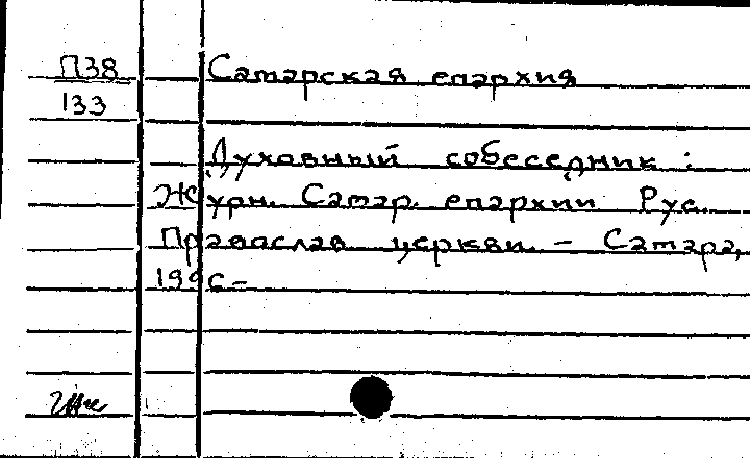 П38
133
Самарская епархия
Духовный собеседник :
Журн. Самар. епархии Рус.
Православ. церкви. – Самара,
1996–